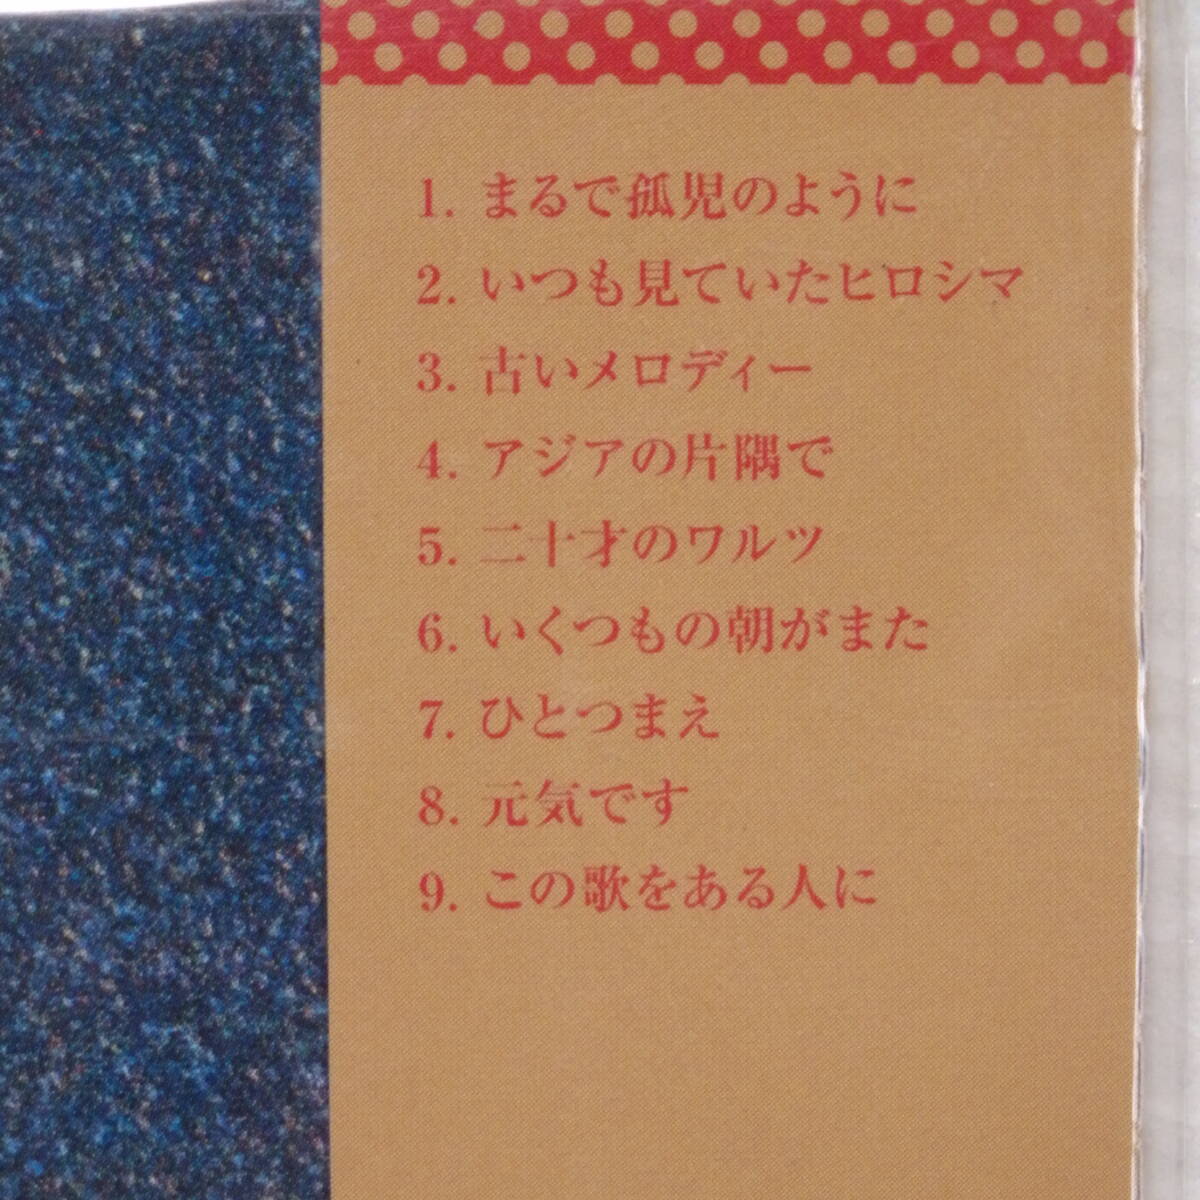 1. まるで孤児のように
2. いつも見ていたヒロシマ
3. 古いメロディー
4. アジアの片隅で
5. 二十才のワルツ
6. いくつもの朝がまた
7. ひとつまえ
8. 元気です
9. この歌をある人に